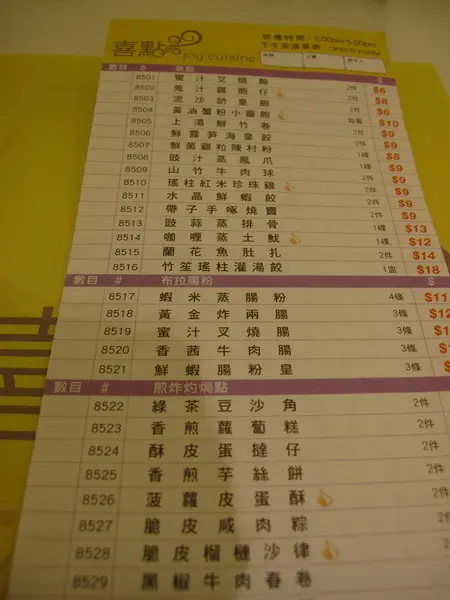 喜點 joy cuisine
供應時間：2:00pm-5:00pm
下午茶點單 ORDER FORM
數目 # 蒸點 $
8501 蜜汁叉燒飽 2件 $6
8502 鬼汁雞飽仔 2件 $8
8503 流沙奶皇飽 2件 $6
8504 黃油蟹粉小籠飽 2件 $10
8505 上湯鮮竹卷 $9
8506 鮮露筍海皇餃 2件 $9
8507 鮮菌雞粒陳村粉 $9
8508 豉汁蒸鳳爪 1碟 $8
8509 山竹牛肉球 2件 $9
8510 瑤柱紅米珍珠雞 2件 $9
8511 水晶鮮蝦餃 2件 $9
8512 帶子手啄燒賣 2件 $9
8513 豉蒜蒸排骨 1碟 $13
8514 咖喱蒸土魷 1碟 $12
8515 蘭花魚肚扎 2件 $14
8516 竹笙瑤柱灌湯餃 1盅 $18
數目 # 布拉腸粉 $
8517 蝦米蒸腸粉 4條 $11
8518 黃金炸兩腸 3條 $12
8519 蜜汁叉燒腸 3條 $1
8520 香茜牛肉腸 3條 $
8521 鮮蝦腸粉皇 3條 $
數目 # 煎炸灼焗點
8522 綠茶豆沙角 2件
8523 香煎蘿蔔糕 2件
8524 酥皮蛋撻仔 2件
8525 香煎芋絲餅 2件
8526 菠蘿皮蛋酥 2件
8527 脆皮咸肉粽 2件
8528 脆皮榴槤沙律 2件
8529 黑椒牛肉春卷